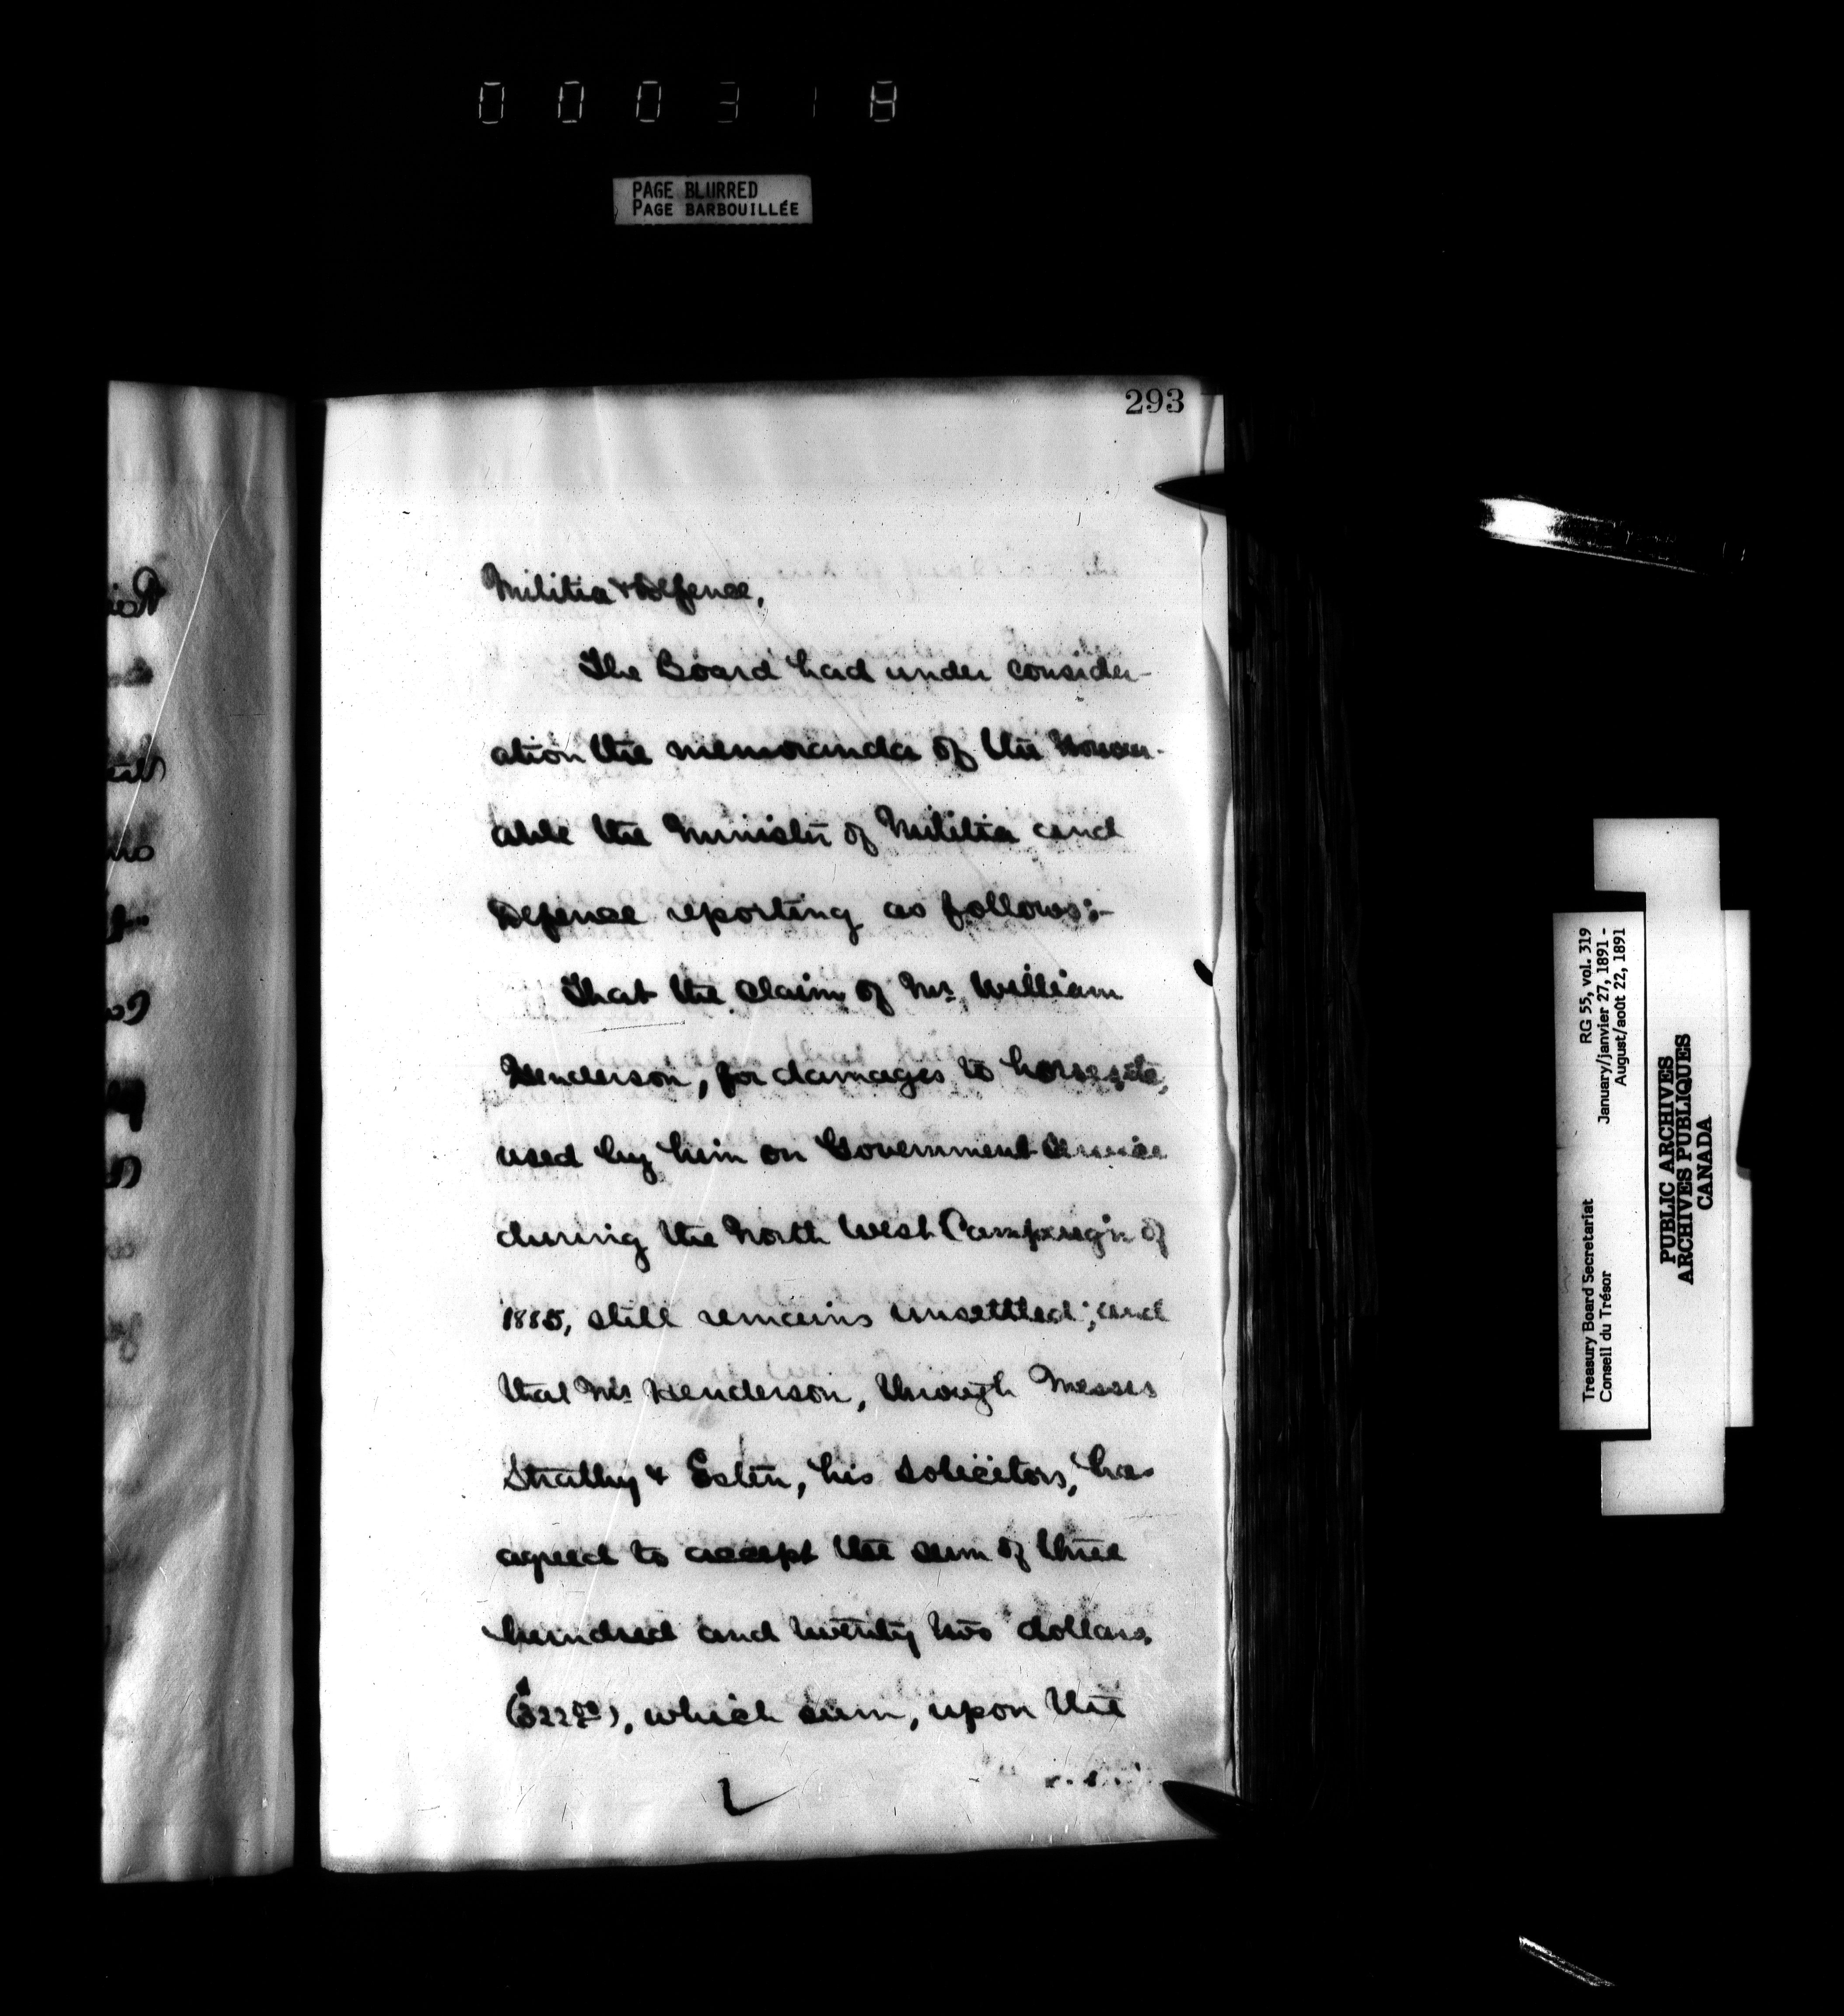 000318
PAGE BLURRED
PAGE BARBOUILLÉE
293
Militia & Defence,
The Board had under consider-
ation the memoranda of the Honour-
able the Minister of Militia and
Defence reporting as follows:-
That the claim of Mr. William
Henderson, for damages to horses, etc,
used by him on Government Service
during the North West Campaign of
1885, still remains unsettled; and
that Mr. Henderson, through Messrs
Strathy & Esten, his Solicitors, has
agreed to accept the sum of three
hundred and twenty two dollars
($322.00), which sum, upon the
Treasury Board Secretariat RG 55, vol. 319
Conseil du Trésor January/janvier 27, 1891 -
August/août 22, 1891
PUBLIC ARCHIVES
ARCHIVES PUBLIQUES
CANADA